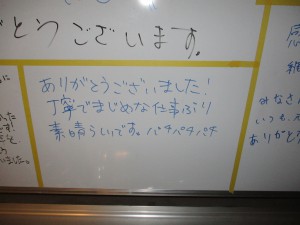 とうございます。
ありがとうございました!
丁寧でまじめな仕事ぶり
素晴らいです。パチパチパチ
みなさん
いつも
ありがとう